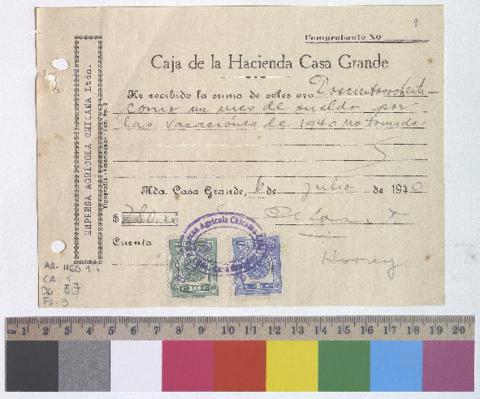 1
Comprobante Nº
Caja de la Hacienda Casa Grande
He recibido la suma de soles oro Doscientosochenta
como un mes de sueldo por
las vacaciónes de 1940 no tomadas.
Hda. Casa Grande, 6 de julio de 1940
$ 280.
Cuenta
EMPRESA AGRICOLA CHICAMA Ltda.
Empresa Agricola Chicama
AA-HCG 1-1
CA: 1
Do: 87
Fs: 3
cm 1 2 3 4 5 6 7 8 9 10 11 12 13 14 15 16 17 18 19 20